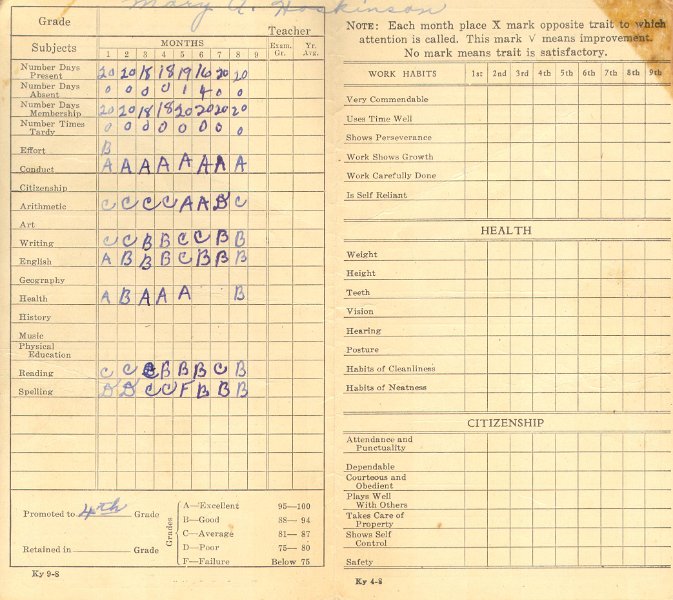 Mary A. Hoskinson
Grade
Teacher
Subjects MONTHS Exam. Gr. Yr. Avg.
1 2 3 4 5 6 7 8 9
Number Days Present 20 20 18 18 19 16 20 20
Number Days Absent 0 0 0 0 1 4 0 0
Number Days Membership 20 20 18 18 20 20 20 20
Number Times Tardy 0 0 0 0 0 0 0 0
Effort B
Conduct A A A A A A A A
Citizenship
Arithmetic C C C C A A B C
Art
Writing C C B B C C B B
English A B B B C B B B
Geography
Health A B A A A B
History
Music
Physical Education
Reading C C C B B B C B
Spelling D D C C F B B B
Promoted to 4th Grade
Retained in Grade
Grades
A—Excellent 95—100
B—Good 88— 94
C—Average 81— 87
D—Poor 75— 80
F—Failure Below 75
Ky 9-8
NOTE: Each month place X mark opposite trait to which
attention is called. This mark V means improvement.
No mark means trait is satisfactory.
WORK HABITS 1st 2nd 3rd 4th 5th 6th 7th 8th 9th
Very Commendable
Uses Time Well
Shows Perseverance
Work Shows Growth
Work Carefully Done
Is Self Reliant
HEALTH
Weight
Height
Teeth
Vision
Hearing
Posture
Habits of Cleanliness
Habits of Neatness
CITIZENSHIP
Attendance and
Punctuality
Dependable
Courteous and
Obedient
Plays Well
With Others
Takes Care of
Property
Shows Self
Control
Safety
Ky 4-8